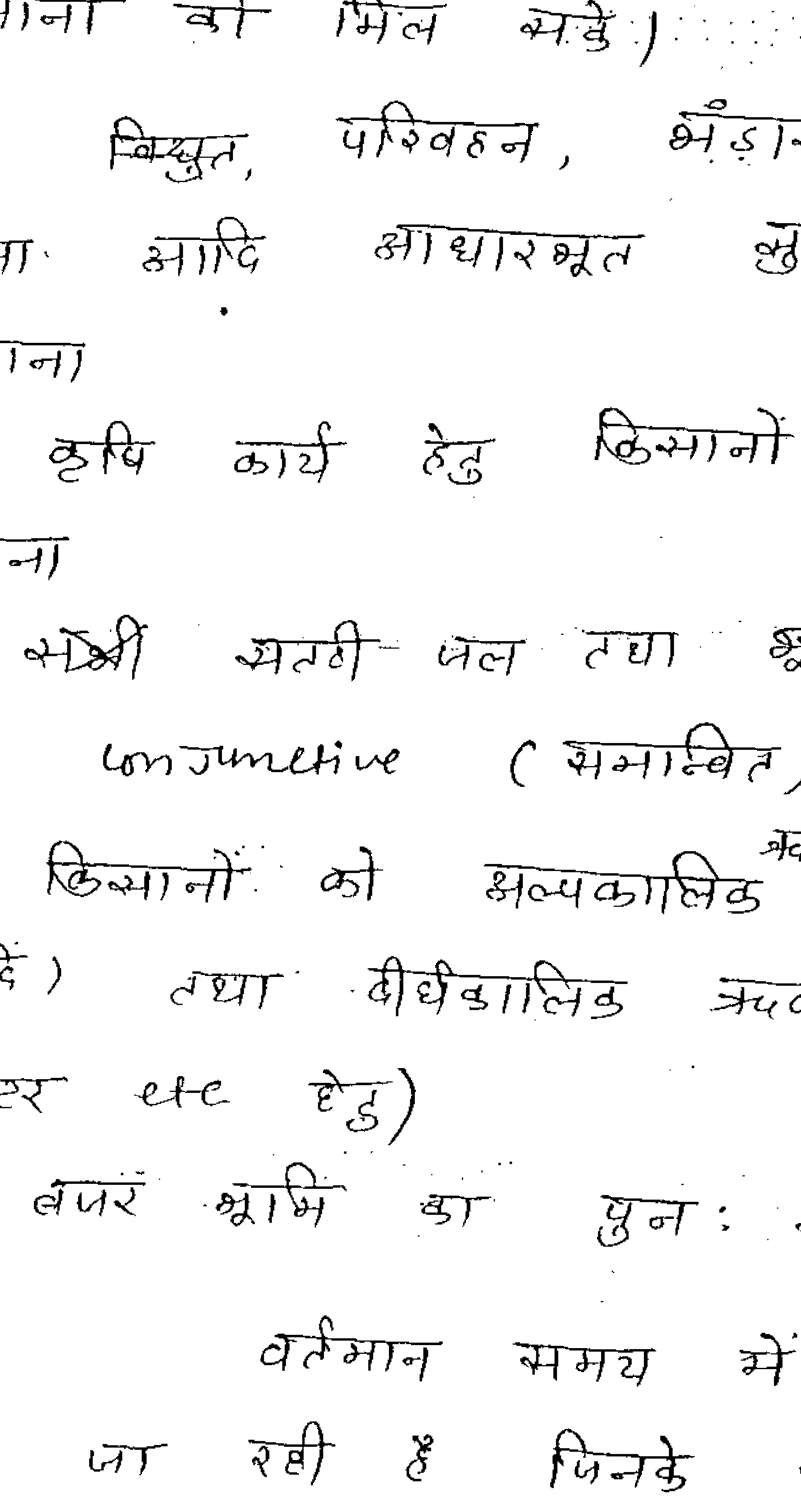 को मिल सकें)
विद्युत, परिवहन,
आदि आधारभूत
कृषि कार्य हेतु किसानों
सतही जल तथा
conjunctive (समान्वित)
किसानों को अल्पकालिक
तथा दीर्घकालिक
etc हेतु)
बंजर भूमि का पुन:
वर्तमान समय में
जा रही है जिनके